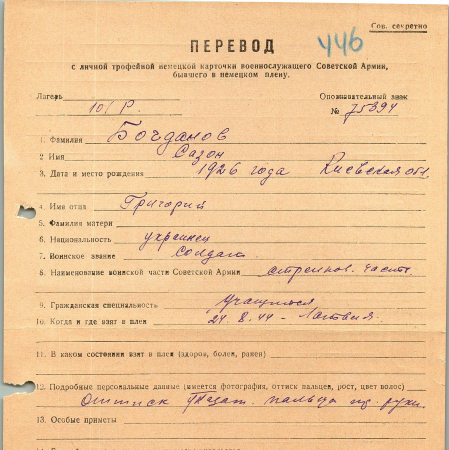 Сов. секретно
446
ПЕРЕВОД
с личной трофейной немецкой карточки военнослужащего Советской Армии,
бывшего в немецком плену.
Лагерь 10/Р. Опознавательный знак
№ 75394
1. Фамилия Богданов
2 Имя Сазон
3. Дата и место рождения 1926 года Киевская обл.
4. Имя отца Григорий
5. Фамилия матери
6. Национальность украинец
7. Воинское звание солдат
8. Наименование воинской части Советской Армии стрелков. часть
9. Гражданская специальность учащийся
10. Когда и где взят в плен 24.8.44 - Латвия.
11. В каком состоянии взят в плен (здоров, болен, ранен)
12. Подробные персональные данные (имеется фотография, оттиск пальцев, рост, цвет волос)
Оттиск указат. пальца пр. руки.
13. Особые приметы